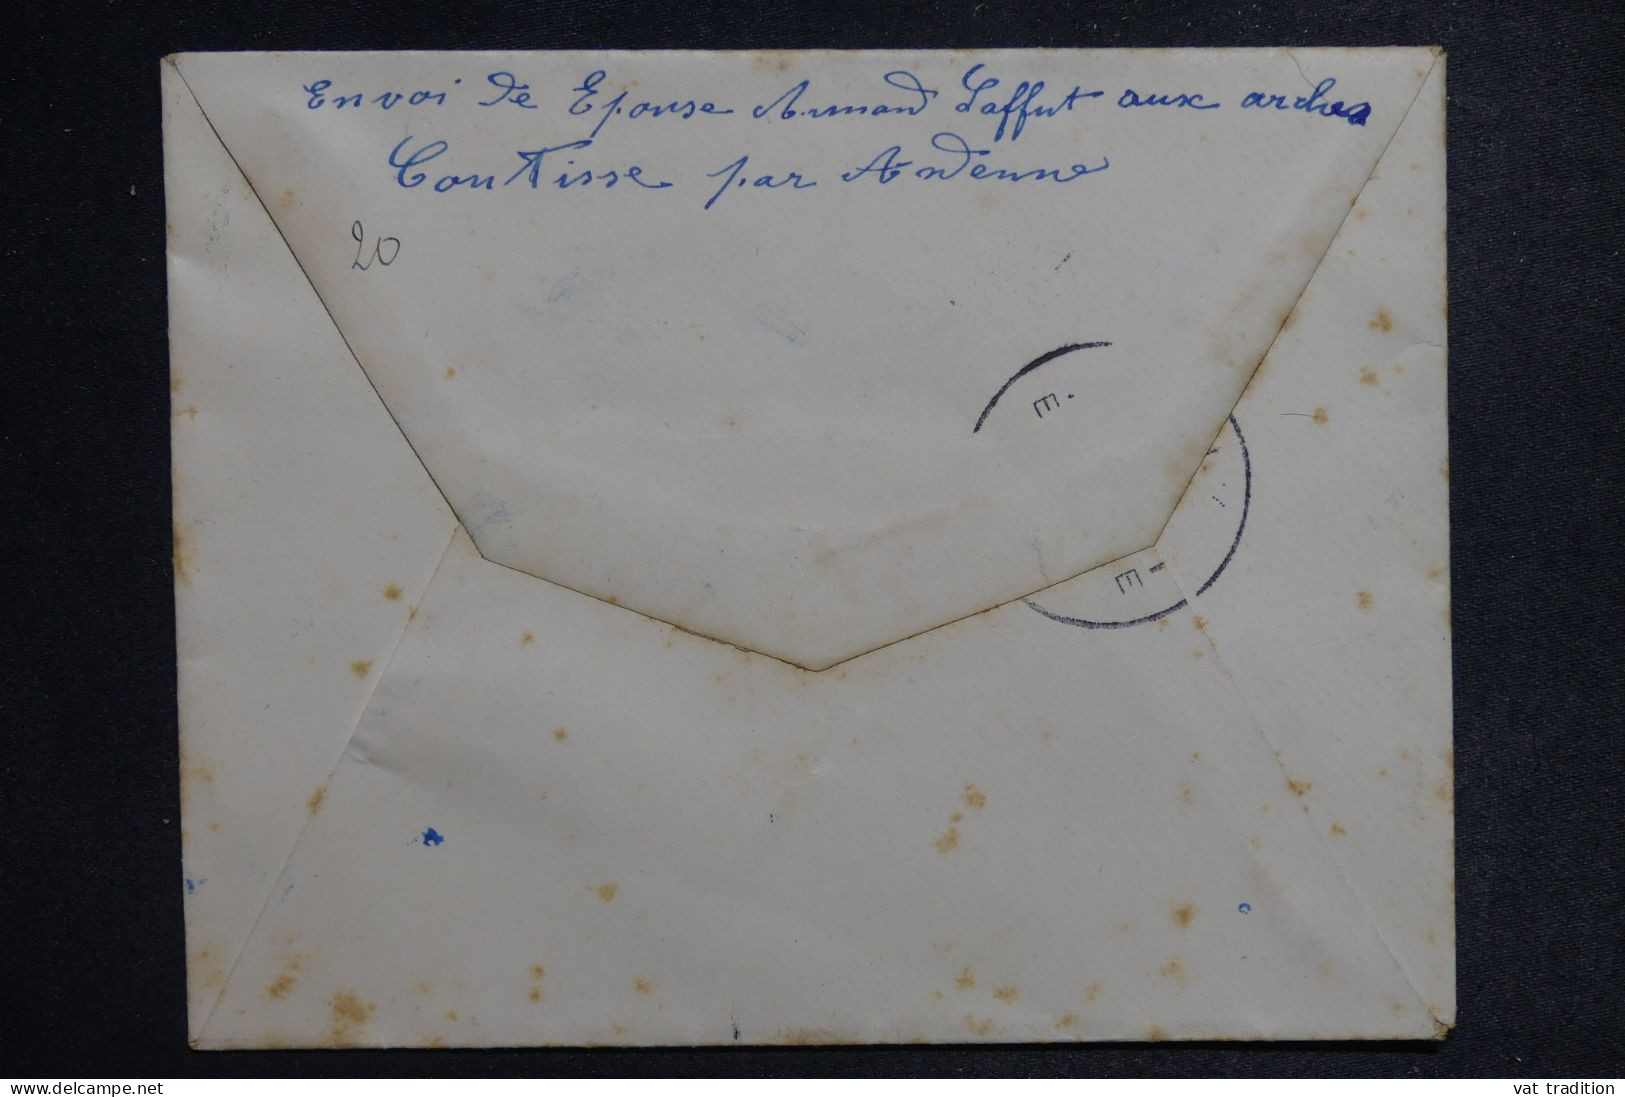 Envoi de Epouse Armand Laffut aux arches
Coutisse par Andenne
20
E
E
www.delcampe.net
vat tradition